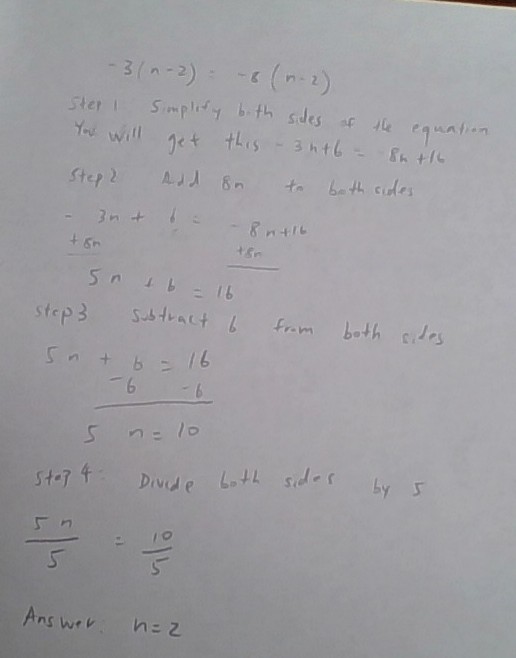 -3(n-2) = -8(n-2)
Step 1 Simplify both sides of the equation
You will get this -3n+6 = -8n+16
Step 2 Add 8n to both sides
- 3n + 6 = - 8n+16
+8n +8n
5n + 6 = 16
step 3 Subtract 6 from both sides
5n + 6 = 16
-6 -6
5 n = 10
Step 4: Divide both sides by 5
5n = 10
5 5
Answer: n=2